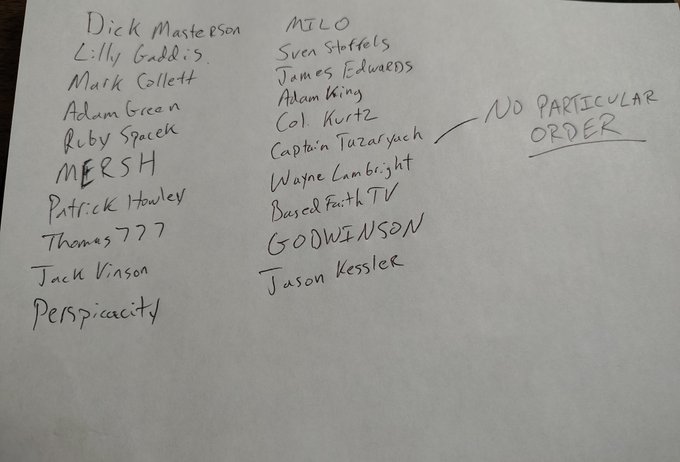 Dick Masterson
Lilly Gaddis
Mark Collett
Adam Green
Ruby Spacek
MERSH
Patrick Howley
Thomas777
Jack Vinson
Perspicacity
MILO
Sven Stoffels
James Edwards
Adam King
Col. Kurtz
Captain Tazaryach
Wayne Lambright
Based Faith TV
GODWINSON
Jason Kessler
NO PARTICULAR
ORDER